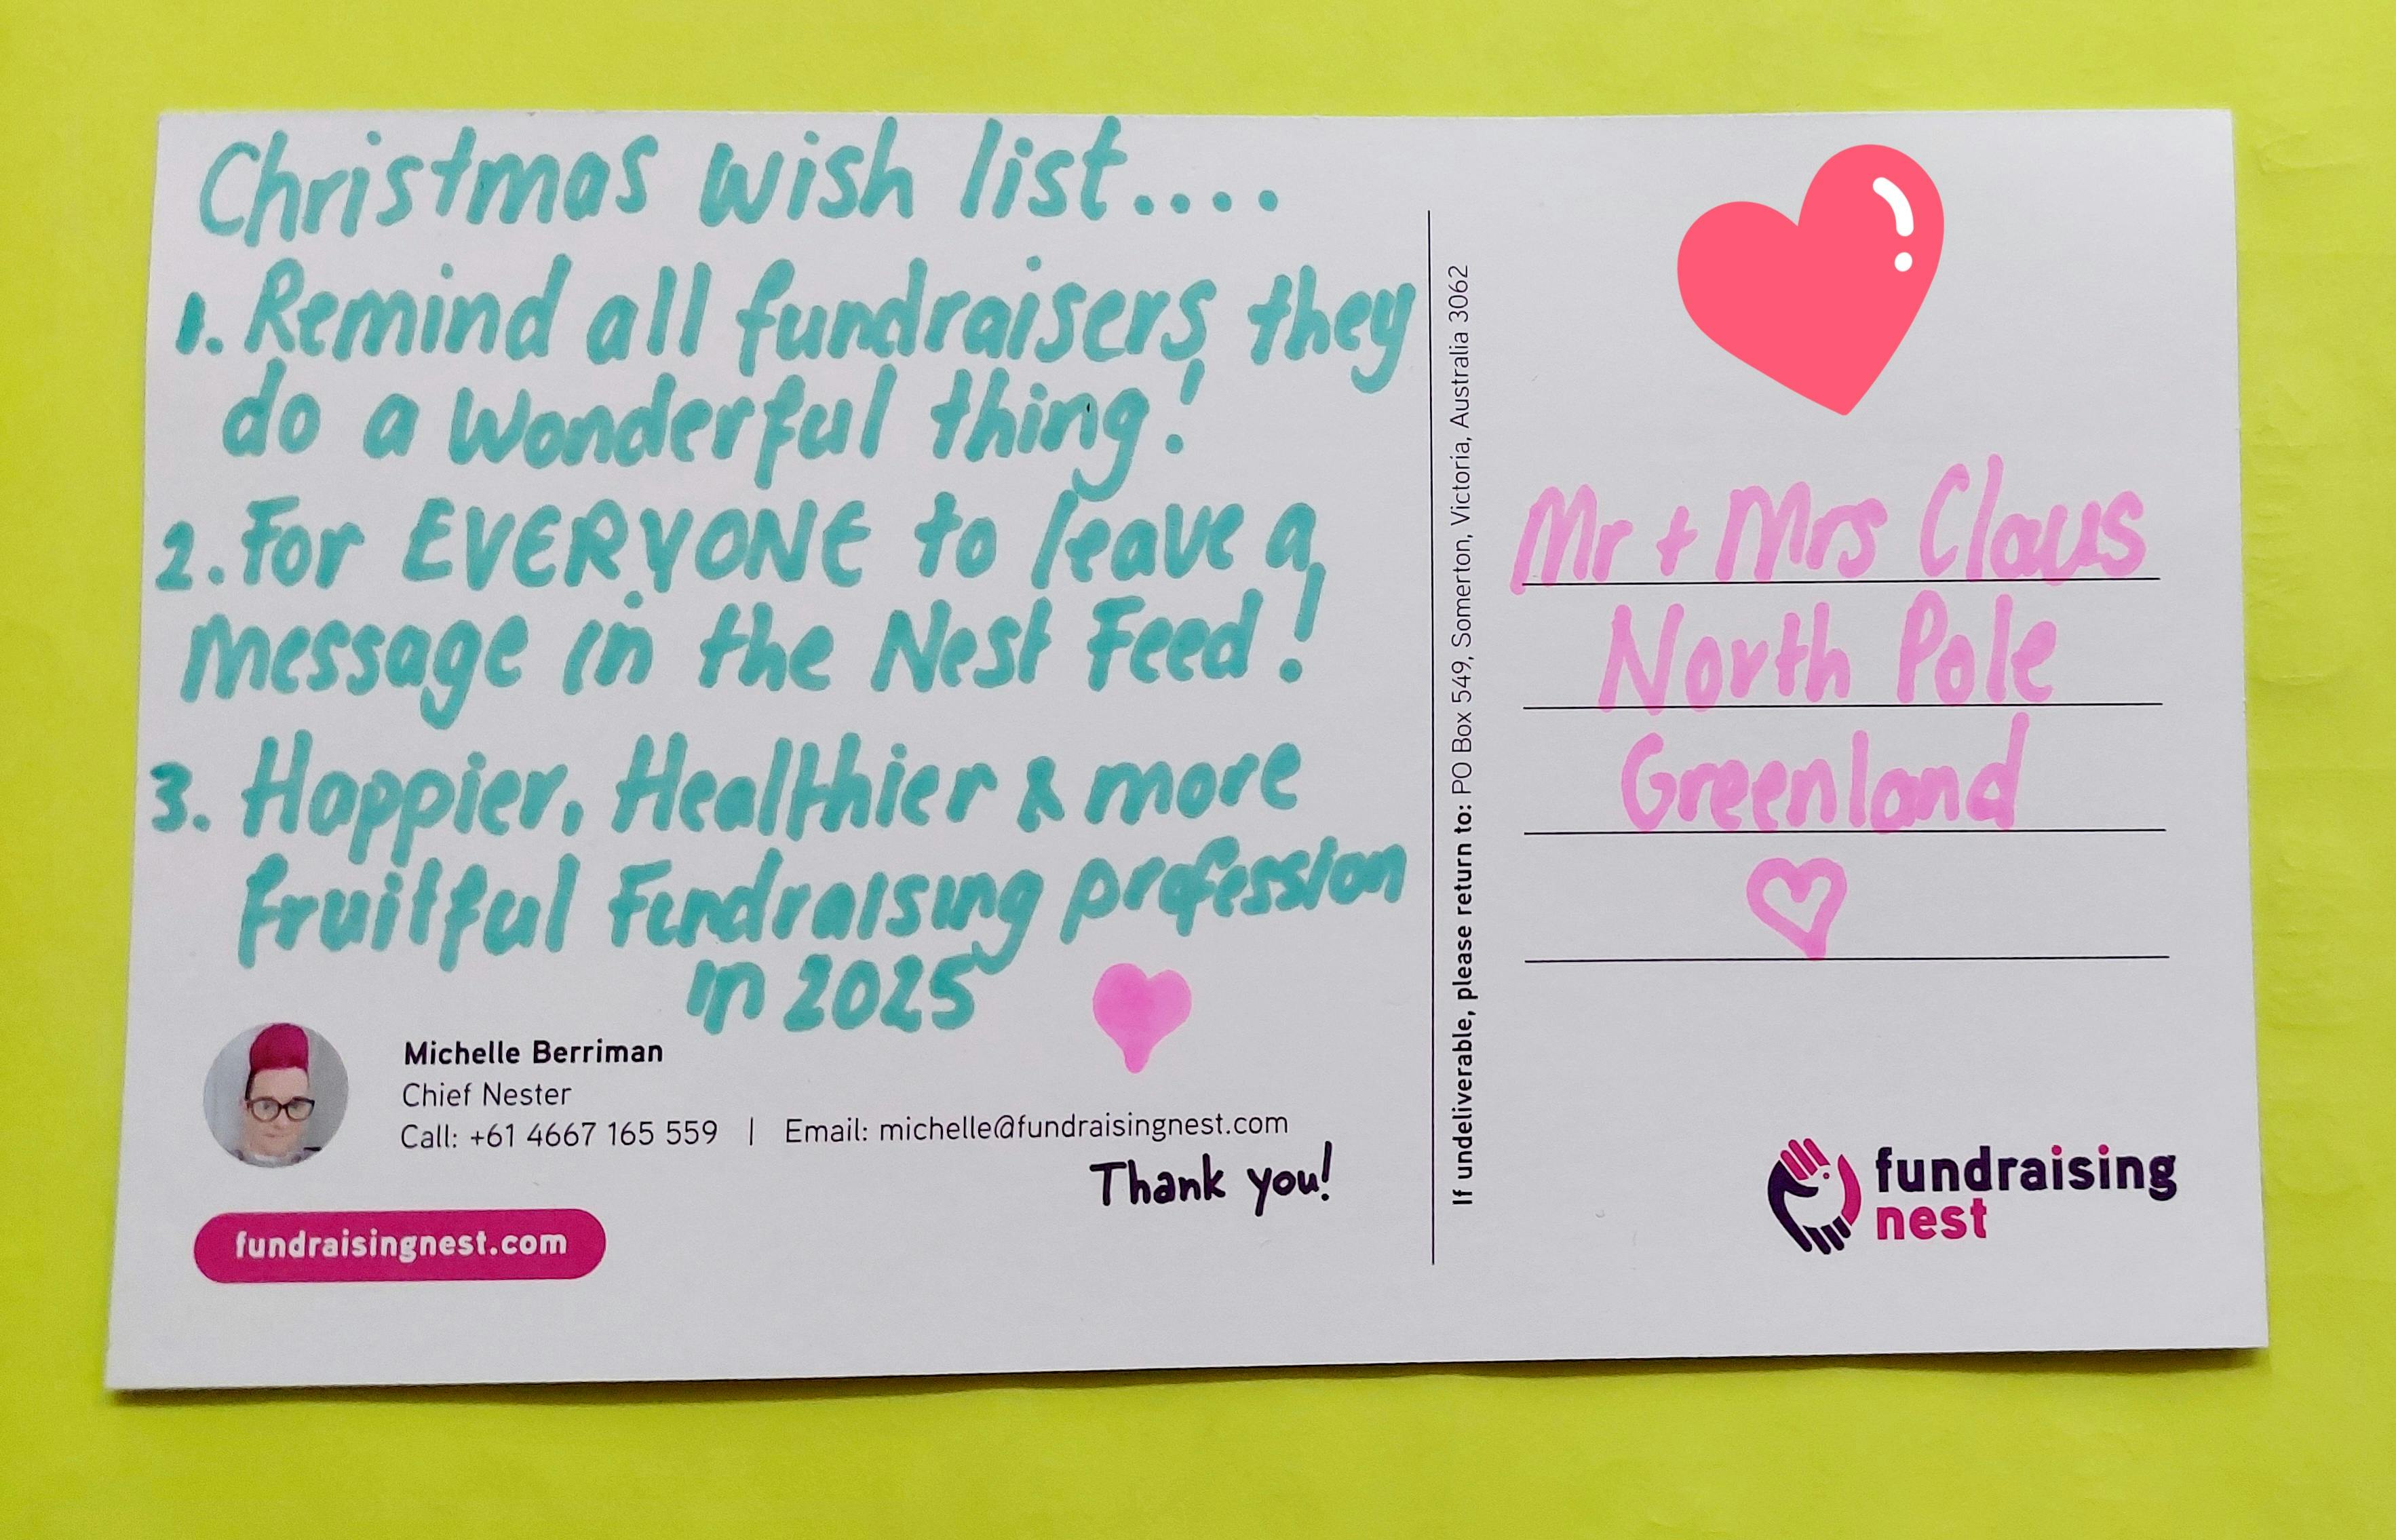 Christmas wish list....
1. Remind all fundraisers they
do a wonderful thing!
2. For EVERYONE to leave a
message in the Nest Feed!
3. Happier, Healthier & more
fruitful Fundraising profession
in 2025
Michelle Berriman
Chief Nester
Call: +61 4667 165 559 | Email: michelle@fundraisingnest.com
Thank you!
fundraisingnest.com
If undeliverable, please return to: PO Box 549, Somerton, Victoria, Australia 3062
Mr + Mrs Claus
North Pole
Greenland
fundraising
nest